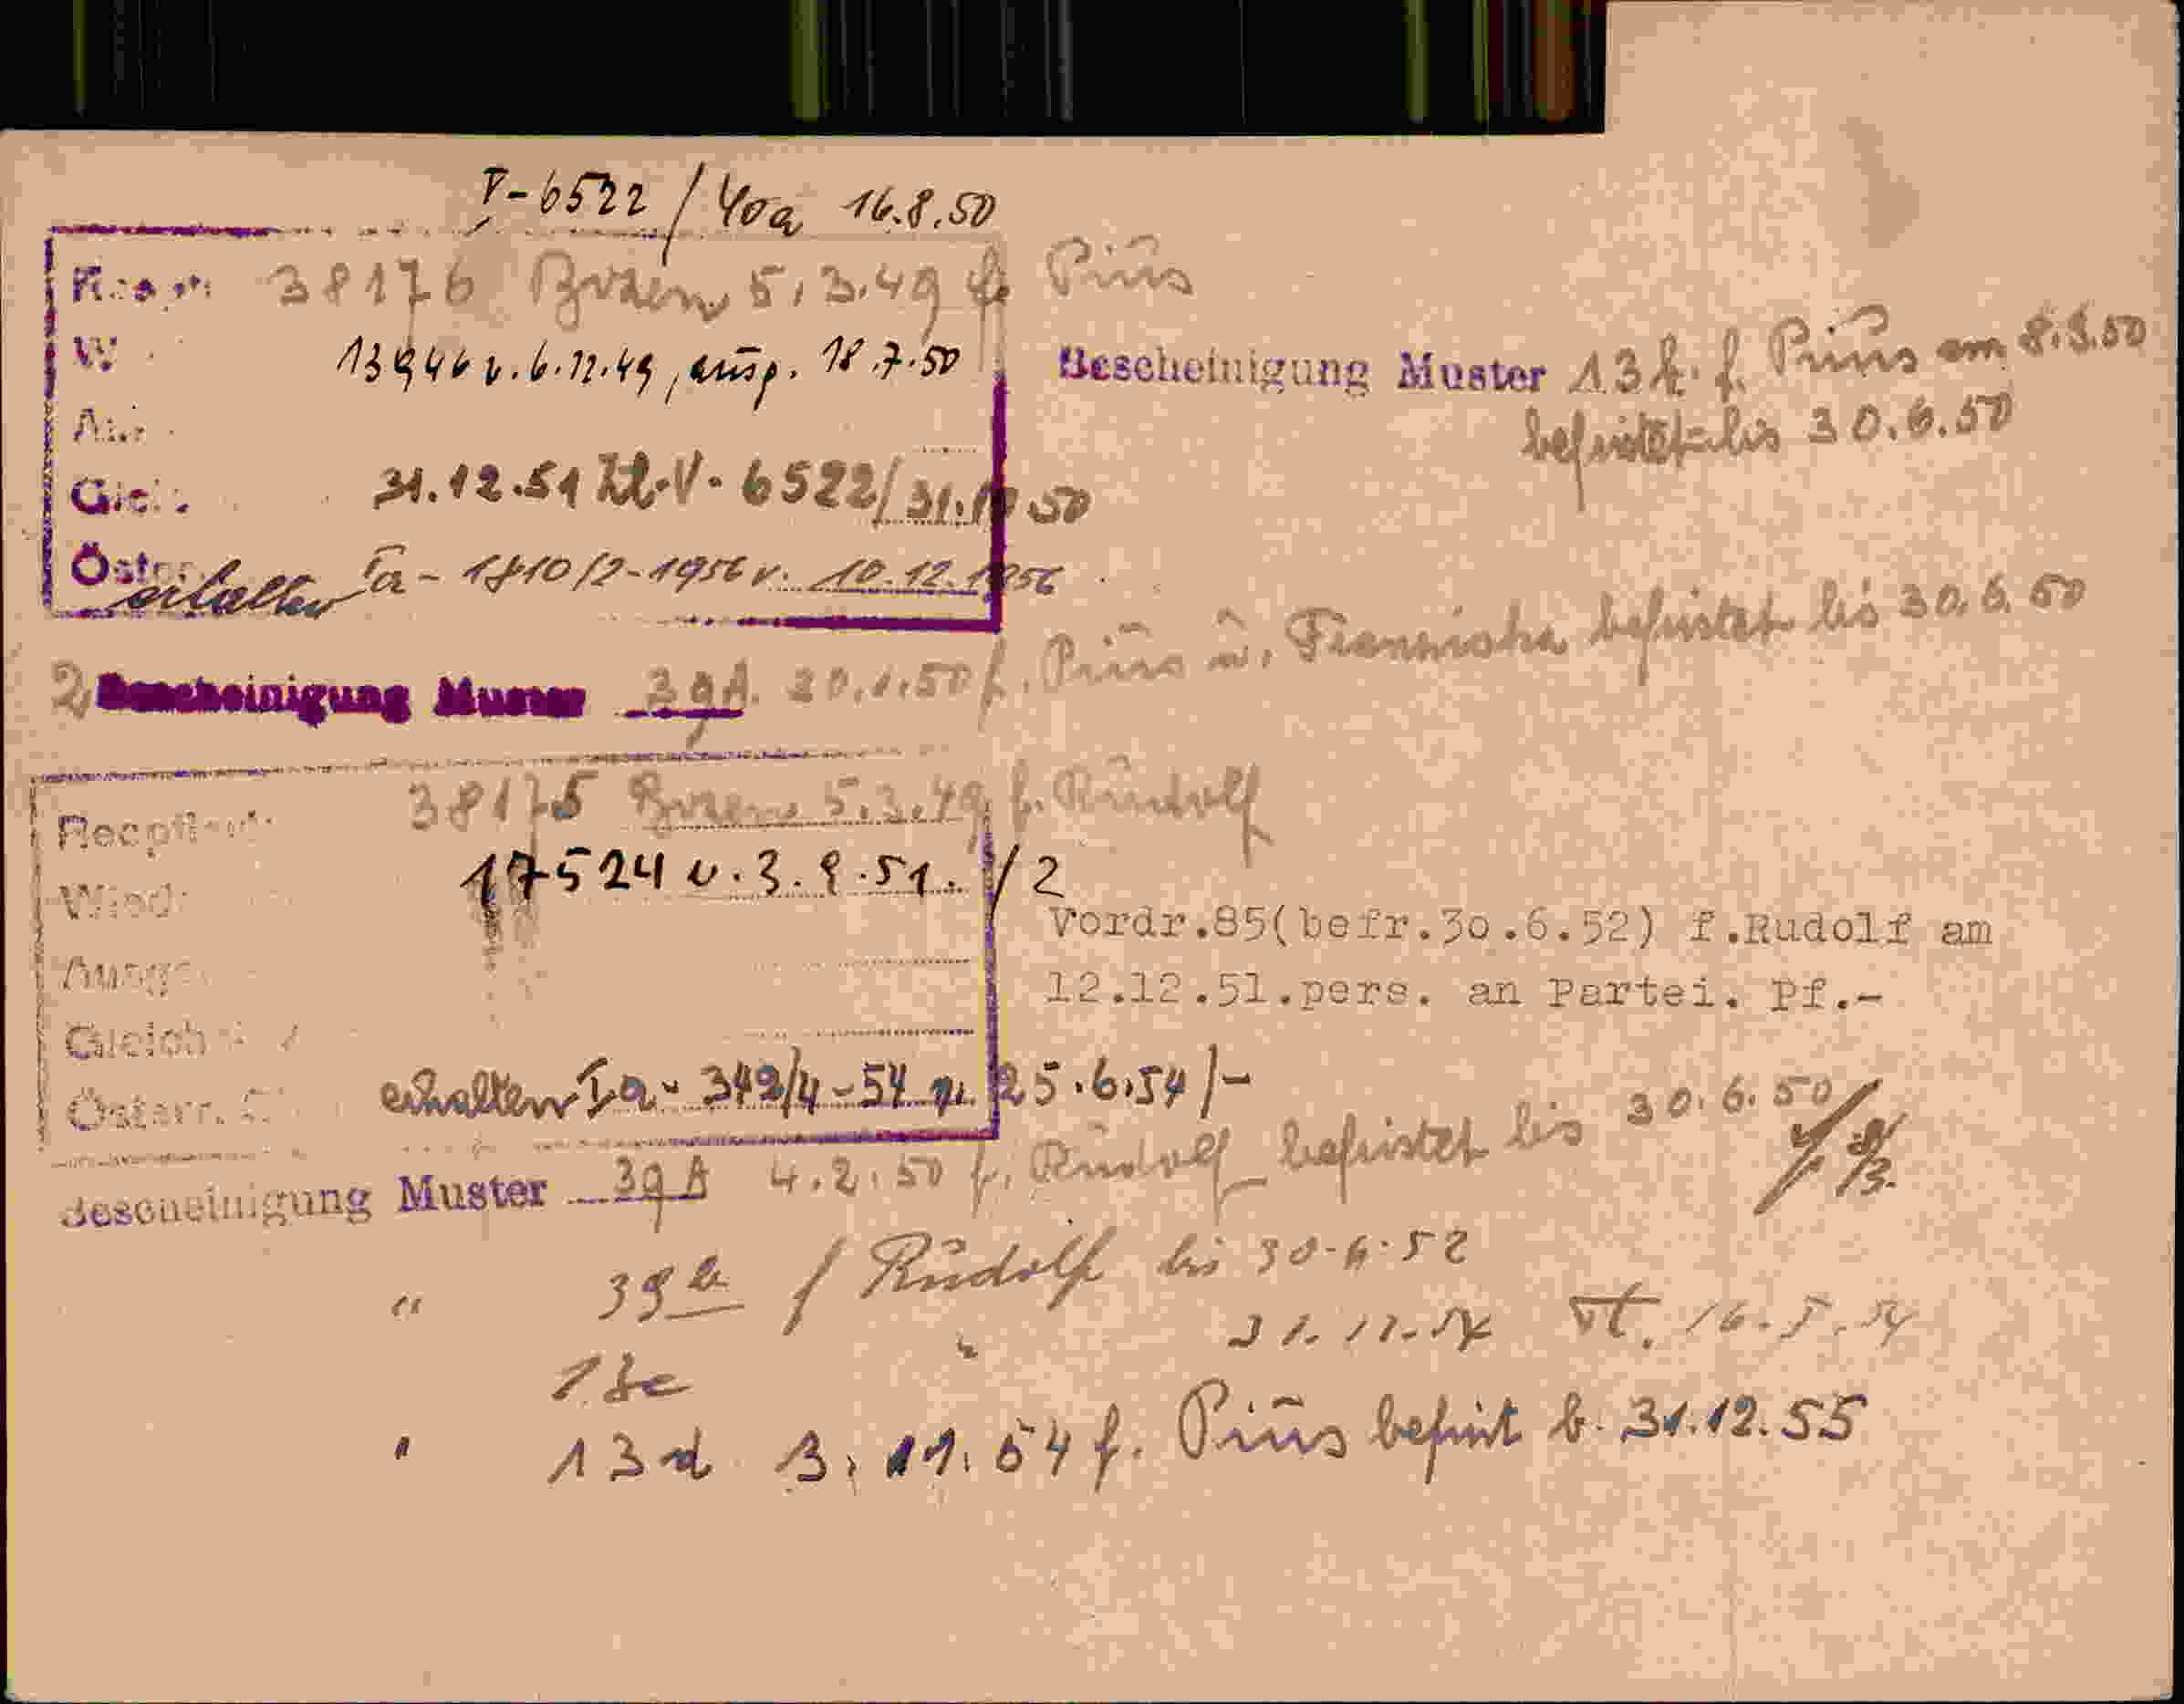 V-6522/40a 16.8.50
38176 Bozen 5.3.49 f. Pius
W 13946 v. 6.12.49, ausg. 18.7.50
Bescheinigung Muster 13 f. Pius am 8.3.50
befristet bis 30.6.50
Gleic 31.12.51 Zl. V. 6522/ 31.10.50
Österr. erhalten Ia - 1810/2-1956 v. 10.12.1956
2 Bescheinigung Muster 39A. 20.1.50 f. Pius u. Franziska befristet bis 30.6.50
Reopflicht 38175 Bozen 5.3.49 f. Rudolf
Wied 17524 v. 3.9.51. /2
Vordr.85(befr.30.6.52) f.Rudolf am
Ausge
12.12.51.pers. an Partei. Pf.-
Gleich
Österr. erhalten Ia - 342/4-54 v. 25.6.54/-
Bescheinigung Muster 39A 4.2.50 f. Rudolf befristet bis 30.6.50
" 39b f Rudolf bis 30.6.52
" 31.12.54 vt. 16.5.54
13e
" 13d 3.11.54 f. Pius befrist b. 31.12.55